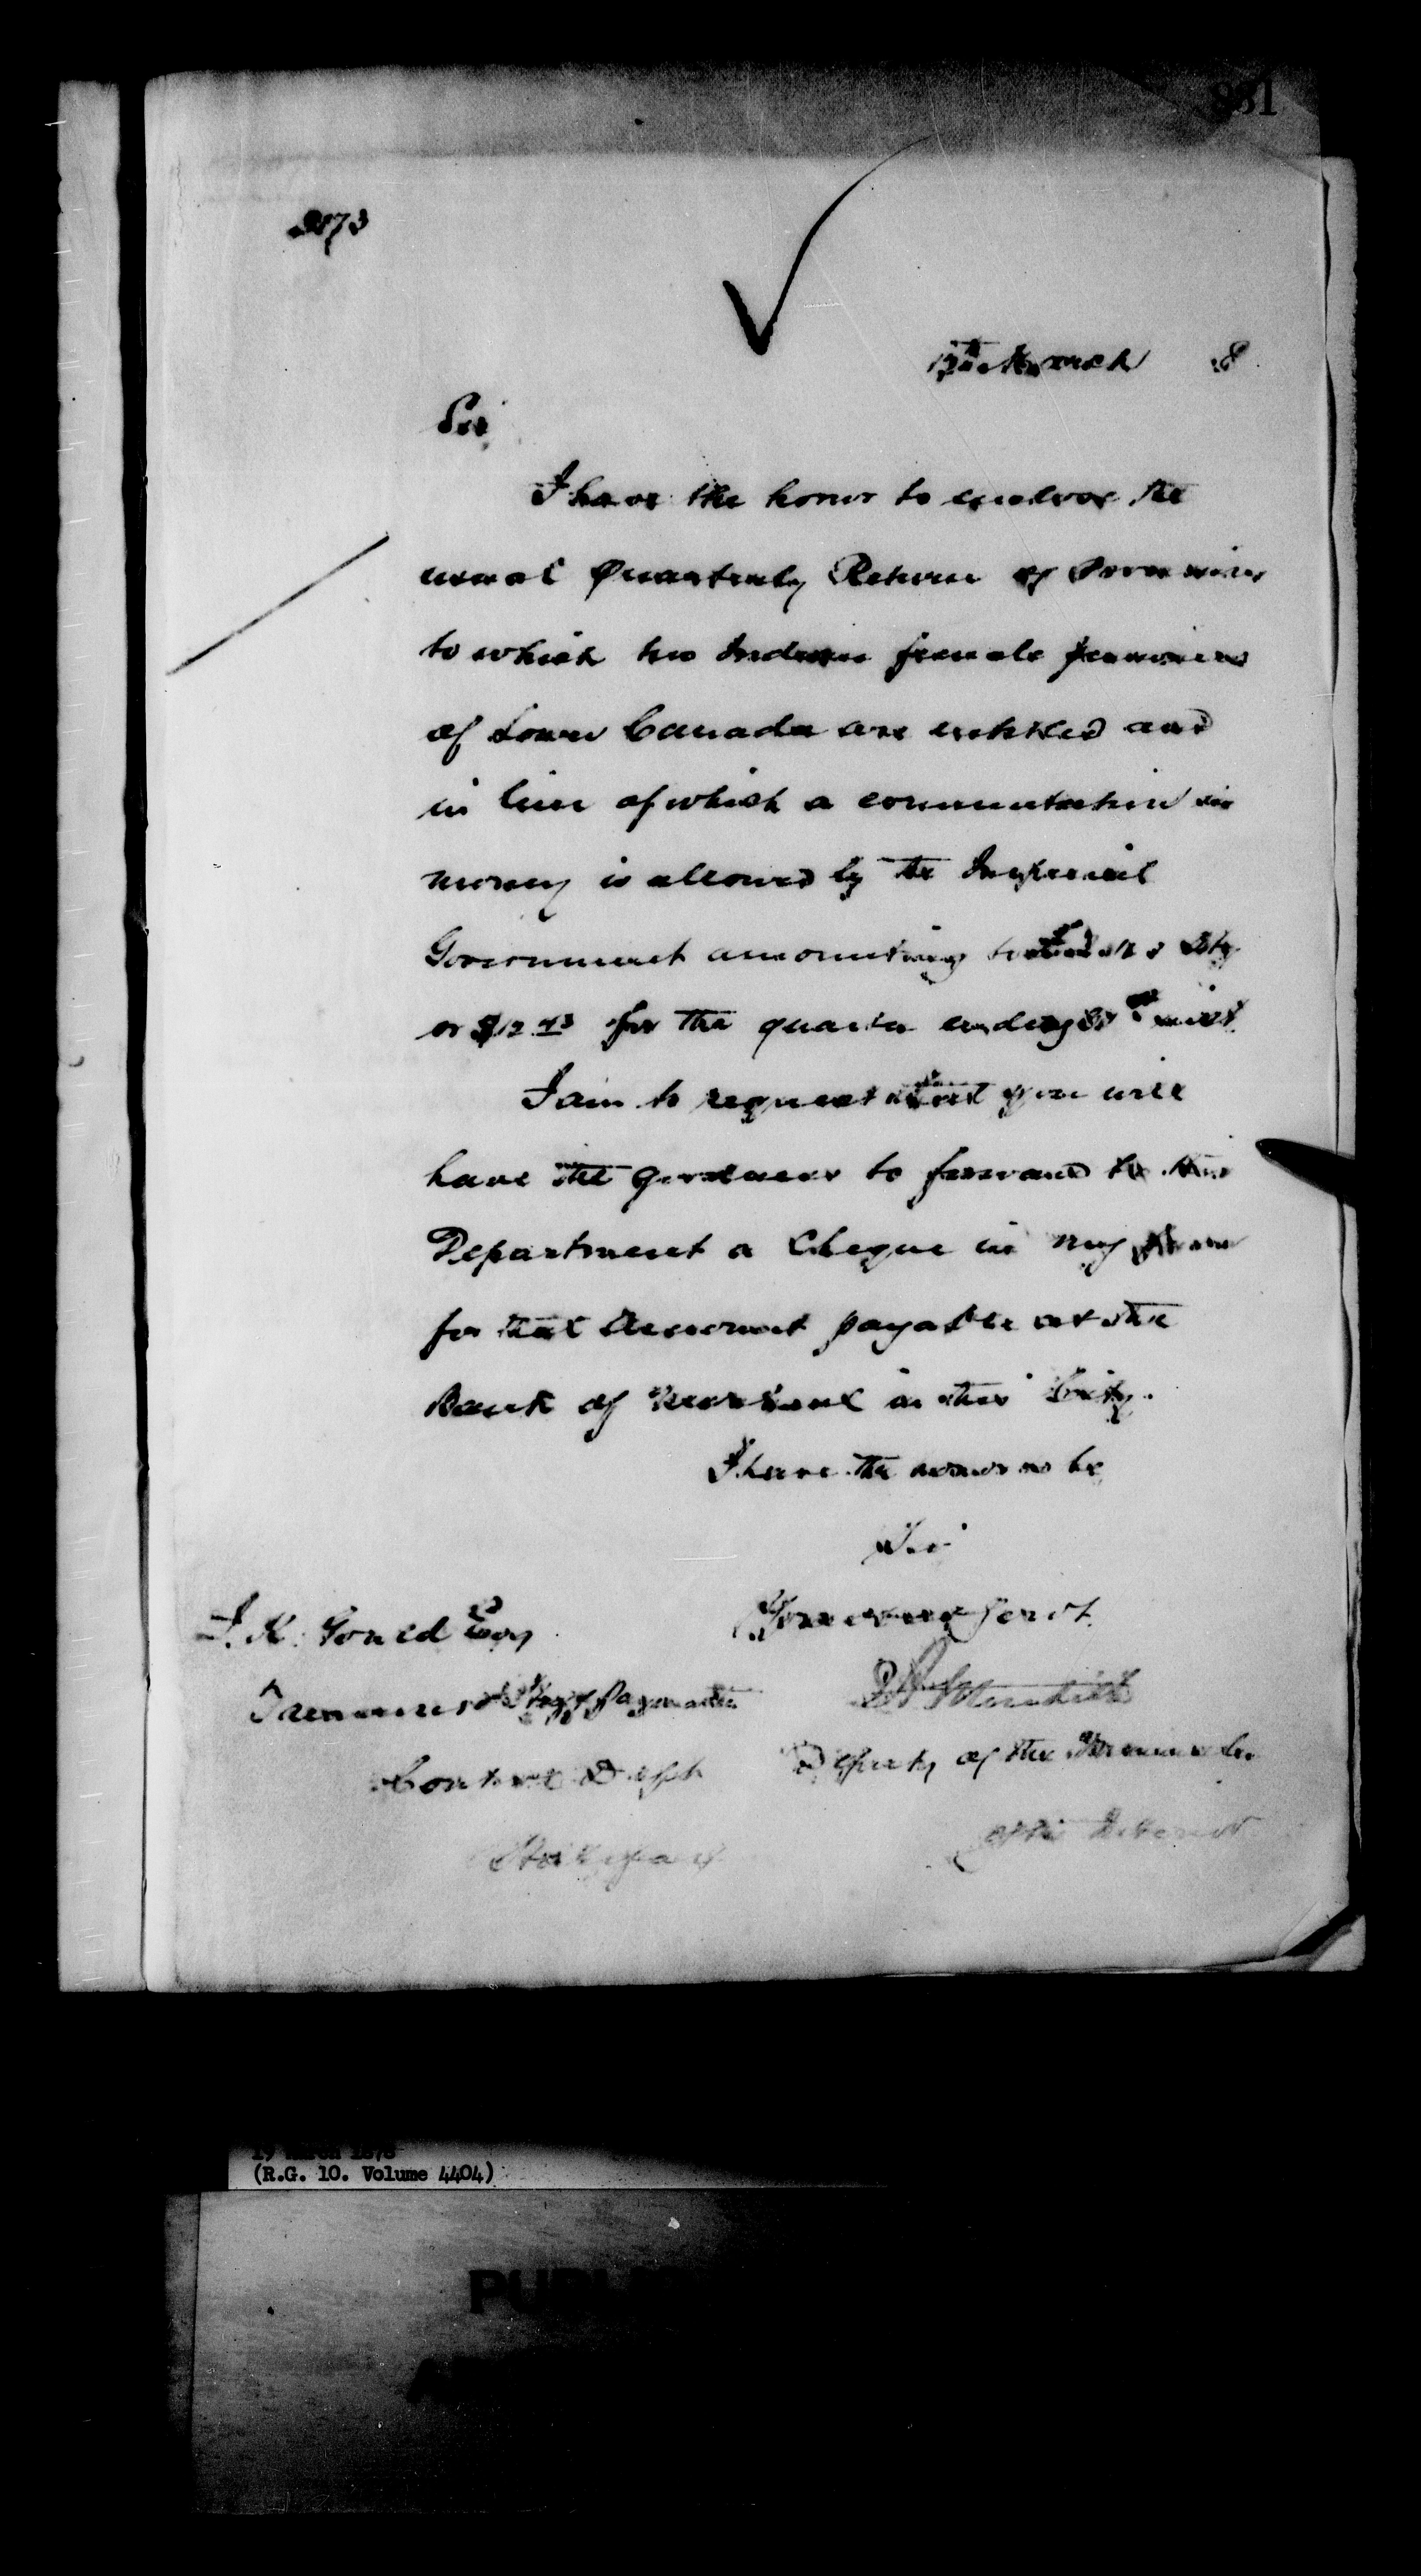 931
March 8
Sir,
I have the honor to enclose the
usual Quarterly Return of Provisions
to which two Indian female pensioners
of Lower Canada are entitled and
in lieu of which a commutation in
money is allowed by the Imperial
Government amounting to Stg
or $12.43 for the quarter ending inst.
I am to request that you will
have the goodness to forward to this
Department a Cheque in my favor
for that Amount payable at the
Bank of Montreal in this City.
I have the honor to be
Sir
Your Servt.
Esqr
Staff Paymaster
Deputy of the Minister
Control Dept
of the Interior
Halifax
(R.G. 10. Volume 4404)